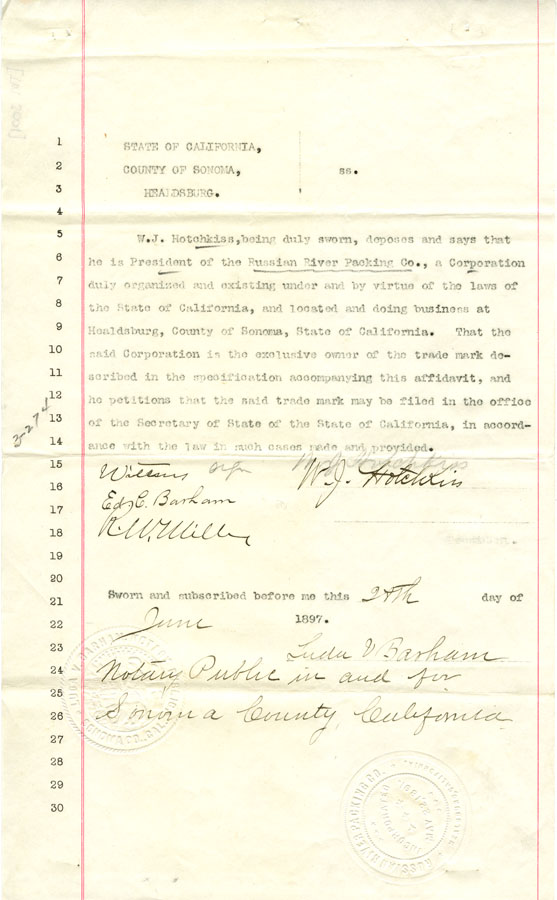 1 STATE OF CALIFORNIA,
2 COUNTY OF SONOMA, ss.
3 HEALDSBURG.
4
5 W.J. Hotchkiss, being duly sworn, deposes and says that
6 he is President of the Russian River Packing Co., a Corporation
7 duly organized and existing under and by virtue of the laws of
8 the State of California, and located and doing business at
9 Healdsburg, County of Sonoma, State of California. That the
10 said Corporation is the exclusive owner of the trade mark de-
11 scribed in the specification accompanying this affidavit, and
12 he petitions that the said trade mark may be filed in the office
13 of the Secretary of State of the State of California, in accord-
14 ance with the law in such cases made and provided.
3274
15 W.J. Hotchkiss
16
17 Ed. C. Barham
18 R.W. Miller
19
20
21 Sworn and subscribed before me this 28th day of
22 June 1897.
23 Luda V Barham
24 Notary Public in and for
25
26 Sonoma County, California
27
28
29
30
RUSSIAN RIVER PACKING CO.
INCORPORATED